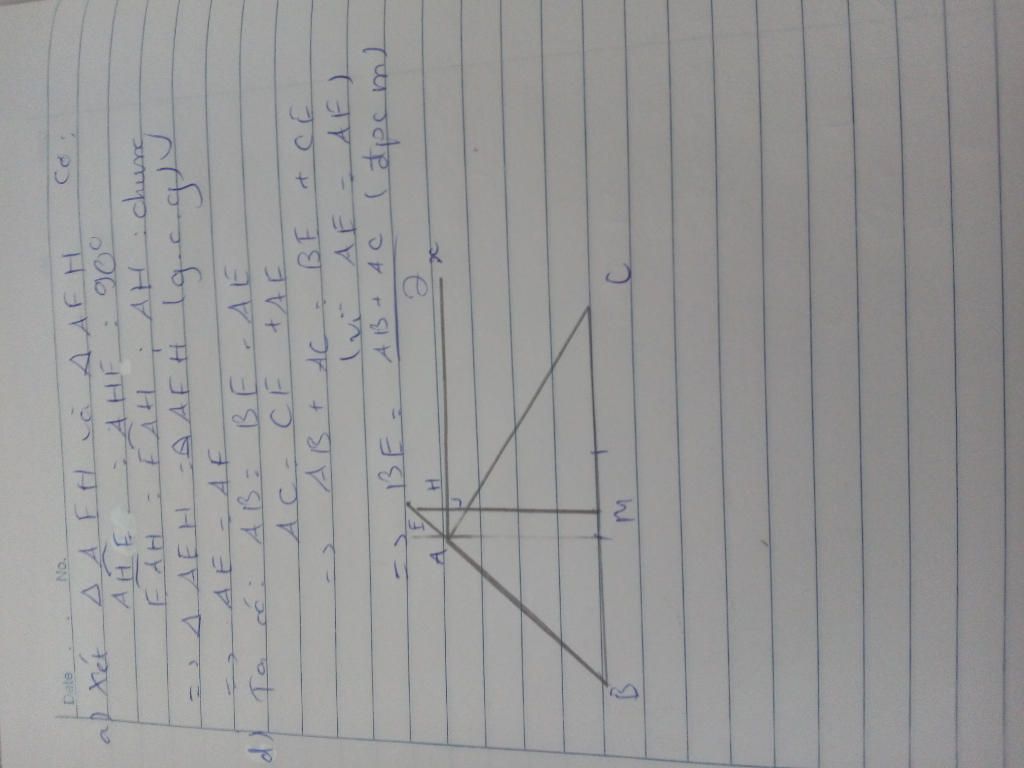 Date No.
a) Xét Δ AEH và Δ AFH có:
AHE = AHF = 90°
EAH = FAH : AH : chung
=> Δ AEH = Δ AFH (g.c.g)
=> AE = AF
d) Ta có: AB = BE - AE
AC = CF + AF
=> AB + AC = BE + CF
(vì AE = AF)
=> BE = AB + AC (đpcm)
A E H x
B M C